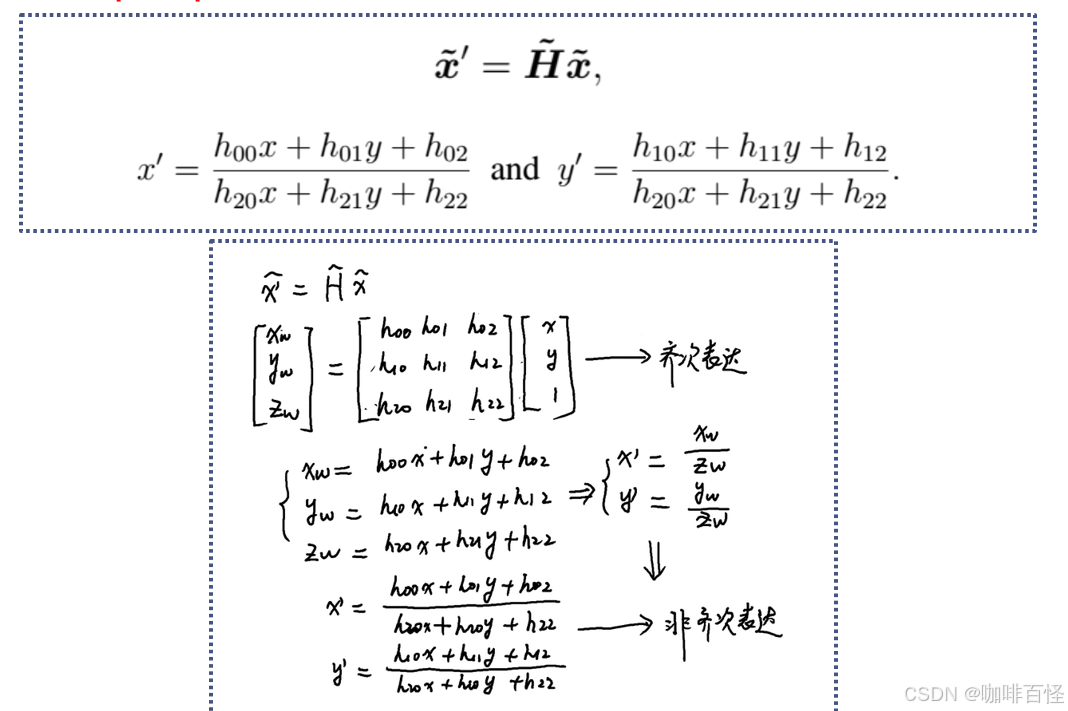 x̃′ = H̃x̃,
x′ = (h₀₀x + h₀₁y + h₀₂)/(h₂₀x + h₂₁y + h₂₂) and y′ = (h₁₀x + h₁₁y + h₁₂)/(h₂₀x + h₂₁y + h₂₂).
x̃′ = H̃ x̃
[xw yw zw] = [h00 h01 h02; h10 h11 h12; h20 h21 h22] [x y 1] → 齐次表达
xw = h00x + h01y + h02
yw = h10x + h11y + h12 ⇒ x′ = xw/zw y′ = yw/zw
zw = h20x + h21y + h22
⇓
x′ = (h00x + h01y + h02)/(h20x + h20y + h22) → 非齐次表达
y′ = (h10x + h11y + h12)/(h20x + h20y + h22)
CSDN @咖啡百怪